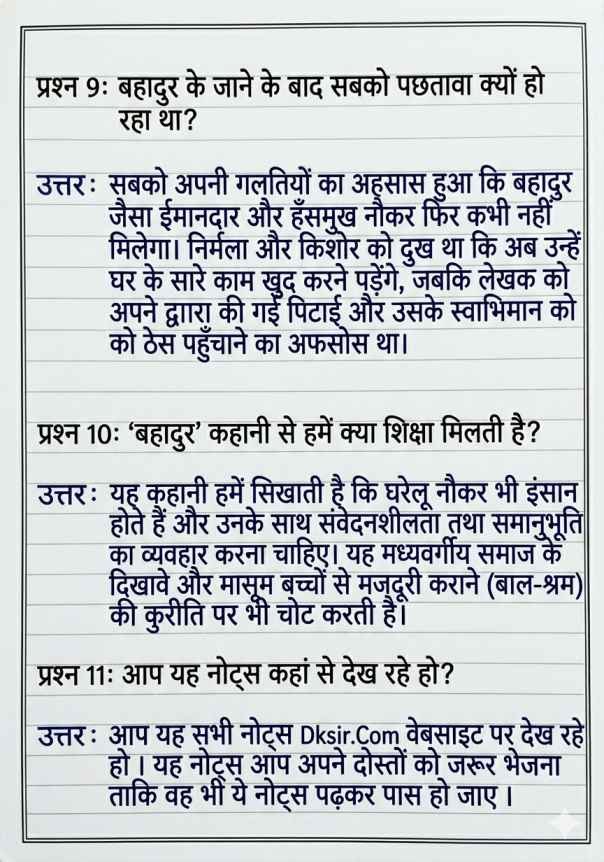 प्रश्न 9: बहादुर के जाने के बाद सबको पछतावा क्यों हो
रहा था?
उत्तर: सबको अपनी गलतियों का अहसास हुआ कि बहादुर
जैसा ईमानदार और हँसमुख नौकर फिर कभी नहीं
मिलेगा। निर्मला और किशोर को दुख था कि अब उन्हें
घर के सारे काम खुद करने पड़ेंगे, जबकि लेखक को
अपने द्वाारा की गई पिटाई और उसके स्वाभिमान को
को ठेस पहुँचाने का अफसोस था।
प्रश्न 10: ‘बहादुर’ कहानी से हमें क्या शिक्षा मिलती है?
उत्तर: यह कहानी हमें सिखाती है कि घरेलू नौकर भी इंसान
होते हैं और उनके साथ संवेदनशीलता तथा समानुभूति
का व्यवहार करना चाहिए। यह मध्यवर्गीय समाज के
दिखावे और मासूम बच्चों से मजदूरी कराने (बाल-श्रम)
की कुरीति पर भी चोट करती है।
प्रश्न 11: आप यह नोट्स कहां से देख रहे हो?
उत्तर: आप यह सभी नोट्स Dksir.Com वेबसाइट पर देख रहे
हो । यह नोट्स आप अपने दोस्तों को जरूर भेजना
ताकि वह भी ये नोट्स पढ़कर पास हो जाए ।